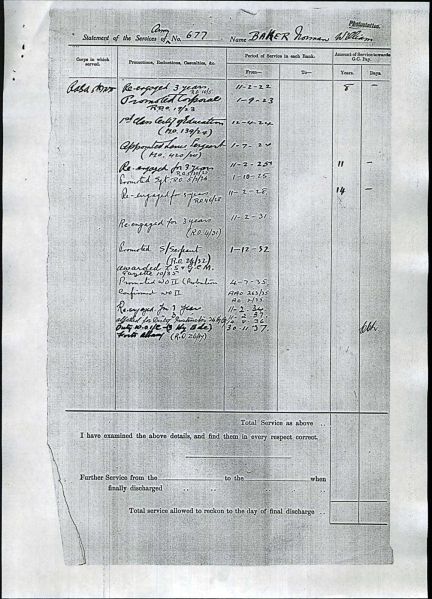 Photostation.
Army
Statement of the Services of No. 677 Name BAKER Norman William
Corps in which served.
Promotions, Reductions, Casualties, &c.
Period of Service in each Rank.
Amount of Service towards G.C. Pay.
From— To— Years. Days.
Re-engaged 3 years 11-2-22 8 —
Promoted Corporal 1-9-23
RAO 19/23
1st Class Certif of Education 12-4-24
(M.O. 139/24)
Appointed Lance Sergeant 1-7-24
(M.O. 420/24)
Re-engaged for 3 years 11-2-25 11 —
Promoted Sgt 1-10-25
Re-engaged for 3 years 11-2-28 14 —
Re-engaged for 3 years 11-2-31
(R.O. 4/31)
Promoted S/Sergeant 1-12-32
(R.O. 26/32)
awarded L.S & G.C.M.
Gazette 10/35
Promoted WO II (Probation 4-7-35
Confirmed WO II AAO 263/35
Re-engaged for 3 year 11-2-34
11-2-37
30-11-37
Total Service as above ..
I have examined the above details, and find them in every respect correct.
Further Service from the to the when
finally discharged
Total service allowed to reckon to the day of final discharge ..